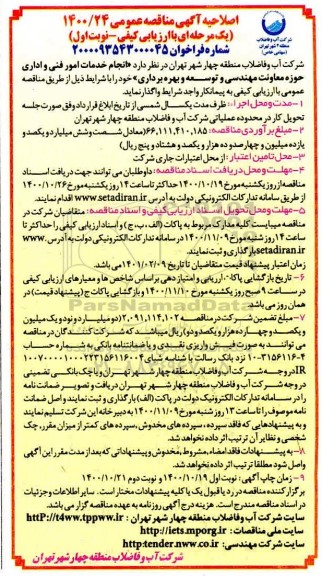 شرکت آب و فاضلاب
منطقه ۴ شهر تهران
(سهامی خاص)
اصلاحیه آگهی مناقصه عمومی ۱۴۰۰/۲۴
(یک مرحله‌ای با ارزیابی کیفی - نوبت اول)
شماره فراخوان ۲۰۰۰۰۹۳۵۴۳۰۰۰۰۴۵
شرکت آب و فاضلاب منطقه چهار شهر تهران در نظر دارد «انجام خدمات امور فنی و اداری
حوزه معاونت مهندسی و توسعه و بهره برداری» خود را با شرایط ذیل از طریق مناقصه
عمومی با ارزیابی کیفی به پیمانکار واجد شرایط واگذار نماید.
۱- مدت و محل اجرا: ظرف مدت یکسال شمسی از تاریخ ابلاغ قرارداد وفق صورت جلسه
تحویل کار در محدوده عملیاتی شرکت آب و فاضلاب منطقه چهار شهر تهران
۲- مبلغ برآوردی مناقصه: ۶۶,۱۱۱,۴۱۰,۱۸۵ (معادل شصت و شش میلیارد و یکصد و
یازده میلیون و چهارصد و ده هزار و یکصد و هشتاد و پنج ریال)
۳- محل تامین اعتبار: از محل اعتبارات جاری شرکت
۴- مهلت و محل دریافت اسناد مناقصه: داوطلبان می توانند جهت دریافت اسناد
مناقصه از روز یکشنبه مورخ ۱۴۰۰/۱۰/۱۹ حداکثر تا ساعت ۱۴ روز یکشنبه مورخ ۱۴۰۰/۱۰/۲۶
از طریق سامانه تدارکات الکترونیکی دولت به آدرس www.setadiran.ir اقدام نمایند.
۵- مهلت و محل تحویل اسناد ارزیابی کیفی و اسناد مناقصه: متقاضیان شرکت در
مناقصه میبایست کلیه مدارک مربوط به پاکات (الف، ب، ج) و اسناد ارزیابی کیفی را حداکثر تا
ساعت ۱۴ روز شنبه مورخ ۱۴۰۰/۱۱/۰۹ در سامانه تدارکات الکترونیکی دولت به آدرس www.
setadiran.ir بارگذاری و ثبت نمایند.
زمان اعتبار پیشنهاد قیمت متقاضیان تا تاریخ ۱۴۰۱/۰۲/۰۹ می باشد.
۶- تاریخ بازگشایی پاکات: ارزیابی و امتیاز دهی بر اساس شاخص ها و معیارهای ارزیابی کیفی
در ساعت ۹ صبح روز یکشنبه مورخ ۱۴۰۰/۱۱/۱۰ و بازگشایی پاکات ج (پیشنهاد قیمت) در
همان روز می باشد.
۷- مبلغ تضمین شرکت در مناقصه ۲,۰۰۱,۱۱۴,۱۰۲ (دو میلیارد و یک میلیون
و یکصد و چهارده هزار و یکصد و دو) ریال میباشد که شرکت کنندگان در مناقصه
می توانند به صورت فیش واریز نقدی و یا ضمانتنامه بانکی به شماره حساب
در وجه شرکت آب و فاضلاب منطقه چهار شهر تهران دریافت و تصویر ضمانت نامه
را در سامانه تدارکات الکترونیک دولت در پاکت (الف) بارگذاری و ثبت نمایند و اصل ضمانت
نامه موصوف را تا ساعت ۱۳ روز شنبه مورخ ۱۴۰۰/۱۱/۰۹ به دبیرخانه این شرکت تسلیم نمایند
و به پیشنهادهایی که فاقد سپرده، سپرده های مخدوش، سپرده های کمتر از میزان مقرر، چک
شخصی و نظایر آن ترتیب اثر داده نخواهد شد.
۸- به پیشنهادات فاقد امضاء، مشروط، مخدوش و پیشنهاداتی که بعد از مدت مقرر این آگهی
واصل شود مطلقا ترتیب اثر داده نخواهد شد.
۹- زمان چاپ آگهی: نوبت اول ۱۴۰۰/۱۰/۱۹ و نوبت دوم ۱۴۰۰/۱۰/۲۱
برگزار کننده مناقصه در رد یا قبول یک یا کلیه پیشنهادات مختار است. سایر اطلاعات و جزئیات
در اسناد مناقصه مندرج است. هزینه درج آگهی روزنامه به عهده مناقصه گزار می باشد.
سایت شرکت آب و فاضلاب منطقه چهار شهر تهران: http://t4ww.tpww.ir
سایت ملی مناقصات: http://iets.mporg.ir
سایت شرکت مهندسی: http:tender.nww.co.ir
شرکت آب و فاضلاب منطقه چهار شهر تهران